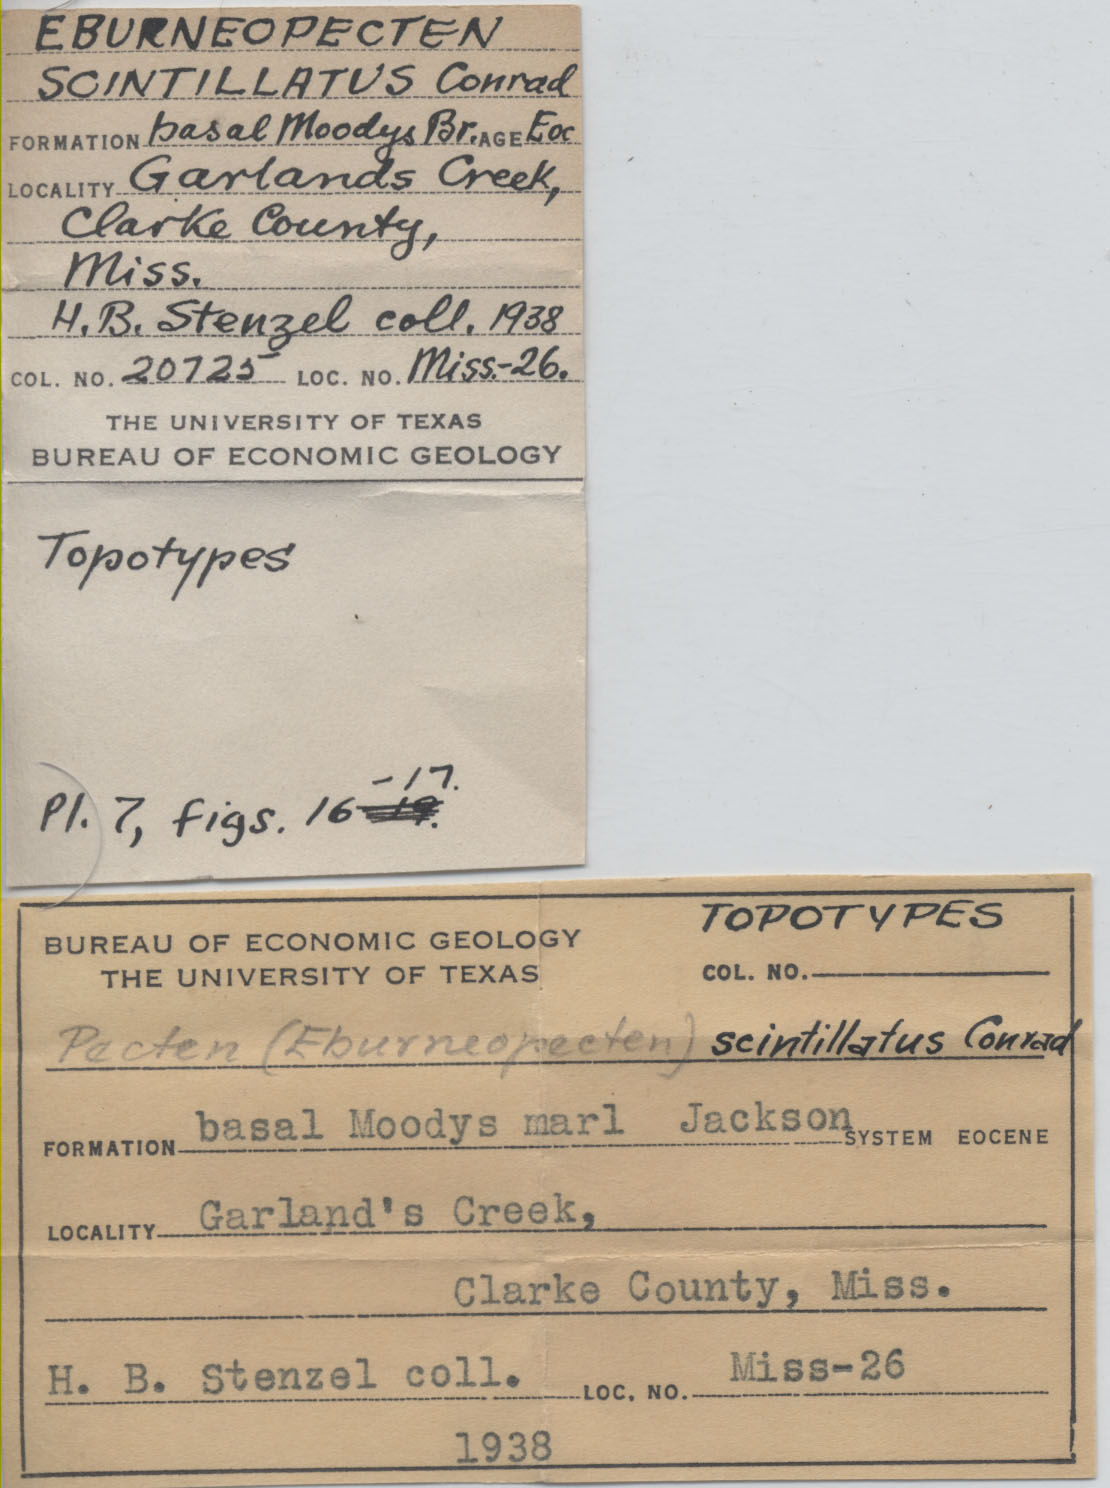 EBURNEOPECTEN
SCINTILLATUS Conrad
FORMATION basal Moodys Br. AGE Eoc
LOCALITY Garlands Creek,
Clarke County,
Miss.
H. B. Stenzel coll. 1938
COL. NO. 20725 LOC. NO. Miss.-26.
THE UNIVERSITY OF TEXAS
BUREAU OF ECONOMIC GEOLOGY
Topotypes
-17.
Pl. 7, figs. 16
TOPOTYPES
BUREAU OF ECONOMIC GEOLOGY
THE UNIVERSITY OF TEXAS
COL. NO.
Pecten (Eburneopecten) scintillatus Conrad
FORMATION basal Moodys marl Jackson SYSTEM EOCENE
LOCALITY Garland's Creek,
Clarke County, Miss.
H. B. Stenzel coll. LOC. NO. Miss-26
1938